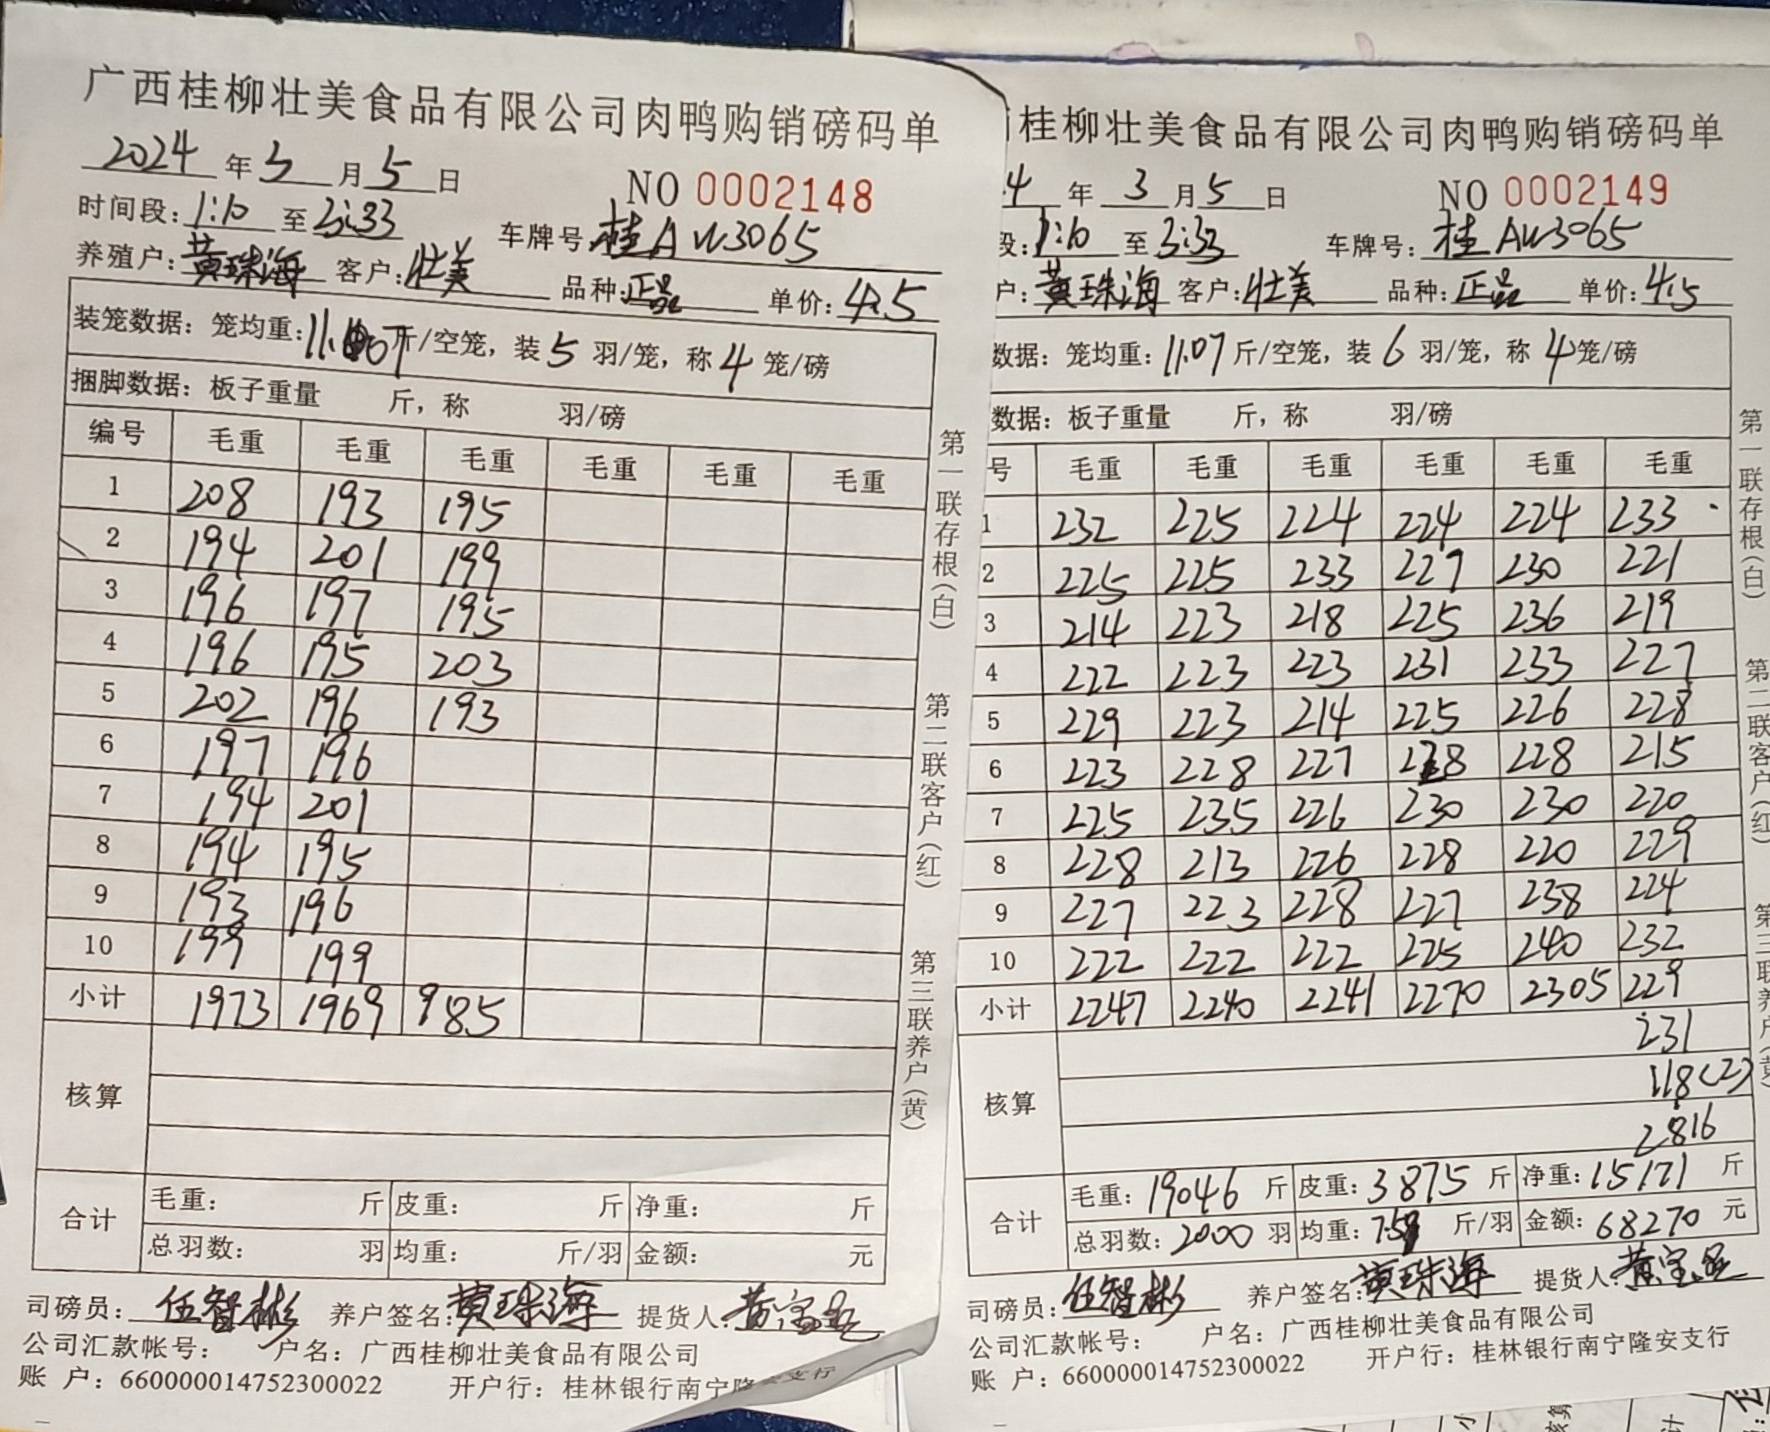 广西桂柳壮美食品有限公司肉鸭购销磅码单
2024 年 3 月 5 日
NO 0002148
时间段: 1:10 至 3:33 车牌号: 桂AW3065
养殖户: 黄珠海 客户: 壮美 品种: 正品 单价: 4.5
装笼数据: 笼均重: 11.07 斤/空笼, 装 5 羽/笼, 称 4 笼/磅
捆脚数据: 板子重量 斤, 称 羽/磅
编号 毛重 毛重 毛重 毛重 毛重 毛重
1 208 193 195
2 194 201 199
3 196 197 195
4 196 195 203
5 202 196 193
6 197 196
7 194 201
8 194 195
9 193 196
10 199 199
小计 1973 1969 985
核算
合计 毛重: 斤 皮重: 斤 净重: 斤
总羽数: 羽 均重: 斤/羽 金额: 元
司磅员: 伍智彬 养户签名: 黄珠海 提货人:
公司汇款帐号: 户名: 广西桂柳壮美食品有限公司
账 户: 660000014752300022 开户行: 桂林银行南宁隆安支行
第一联存根(白) 第二联客户(红) 第三联养户(黄)
桂柳壮美食品有限公司肉鸭购销磅码单
4 年 3 月 5 日
NO 0002149
段: 1:10 至 3:33 车牌号: 桂AW3065
户: 黄珠海 客户: 壮美 品种: 正品 单价: 4.5
数据: 笼均重: 11.07 斤/空笼, 装 6 羽/笼, 称 4 笼/磅
数据: 板子重量 斤, 称 羽/磅
号 毛重 毛重 毛重 毛重 毛重 毛重
1 232 225 224 224 224 233
2 225 225 233 227 230 221
3 214 223 218 225 236 219
4 222 223 223 231 233 227
5 229 223 214 225 226 228
6 223 228 227 228 228 215
7 225 235 226 230 230 220
8 228 213 226 228 220 229
9 227 223 228 227 238 224
10 222 222 222 225 240 232
小计 2247 2240 2241 2270 2305 229
231
核算 118(2)
2816
合计 毛重: 19046 斤 皮重: 3875 斤 净重: 15171 斤
总羽数: 2000 羽 均重: 7.59 斤/羽 金额: 68270 元
司磅员: 伍智彬 养户签名: 黄珠海 提货人:
公司汇款帐号: 户名: 广西桂柳壮美食品有限公司
账 户: 660000014752300022 开户行: 桂林银行南宁隆安支行
第一联存根(白) 第二联客户(红) 第三联养户(黄)